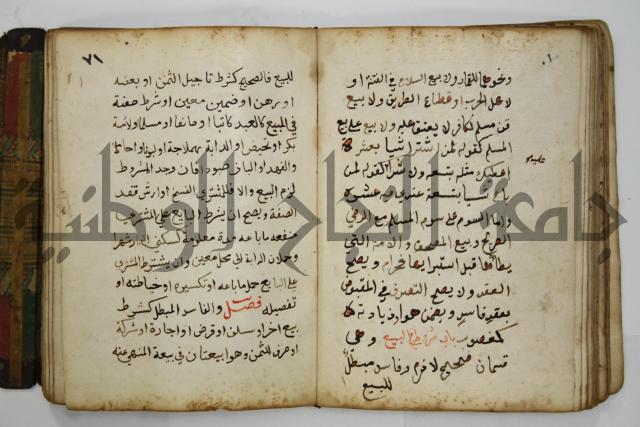 ونحوها للقمار ولا بيع السلاح في الفتنة او
لاهل الحرب او قطاع الطريق ولا بيع
قن مسلم لكافر لا يعتق عليه ولا بيع على بيع
المسلم كقوله لمن اشترا شيا بعشرة
اعطيك مثله بتسعة ولا شراؤه كقوله لمن
باع شيا بتسعة عندي فيه عشرة
واما السوم على سوم المسلم مع الرضى
الصريح وبيع المصحف والامة التي
يطأها قبل استبرايها فحرام ويصح
العقد ولا يصح التصرف في المقبوض
بعقد فاسد ويضمن هو وزيادته
كمغصوب باب الشروط في البيع وهي
قسمان صحيح لازم وفاسد مبطل
للبيع
٧١
للبيع فالصحيح كشرط تاجيل الثمن او بعضه
او رهن او ضمين معين او شرط صفة
في المبيع كالعبد كاتبا او صانعا او مسلما والامة
بكرا او تحيض والدابة هملاجة او لبونا او حاملا
والفهد او البازي صيودا فان وجد المشروط
لزم البيع والا فللمشتري الفسخ او ارش فقد
الصفة ويصح ان يشرط البايع على المشتري
منفعة ما باعه مدة معلومة كسكنى الدار شهرا
وحملان الدابة الى محل معين وان يشترط المشتري
على البايع حمل ما باعه او تكسيره او خياطته او
تفصيله فصل والفاسد المبطل كشرط
بيع اخر او سلف او قرض او اجارة او شركة
او صرف للثمن وهو بيعتان في بيعة المنهي عنه
جامعة النجاح الوطنية